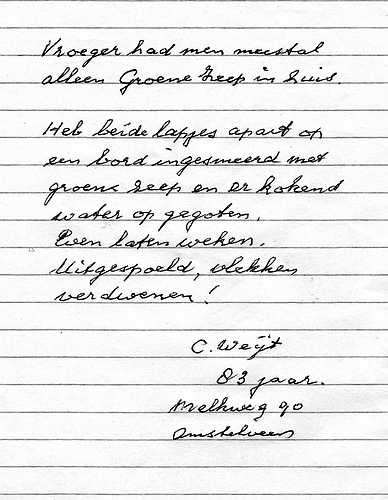 Vroeger had men meestal
alleen Groene Zeep in huis.
Heb beide lapjes apart op
een bord ingesmeerd met
groene zeep en er kokend
water op gegoten.
Even laten weken.
Uitgespoeld, vlekken
verdwenen!
C. Weijt
83 jaar.
Melkweg 90
Amstelveen